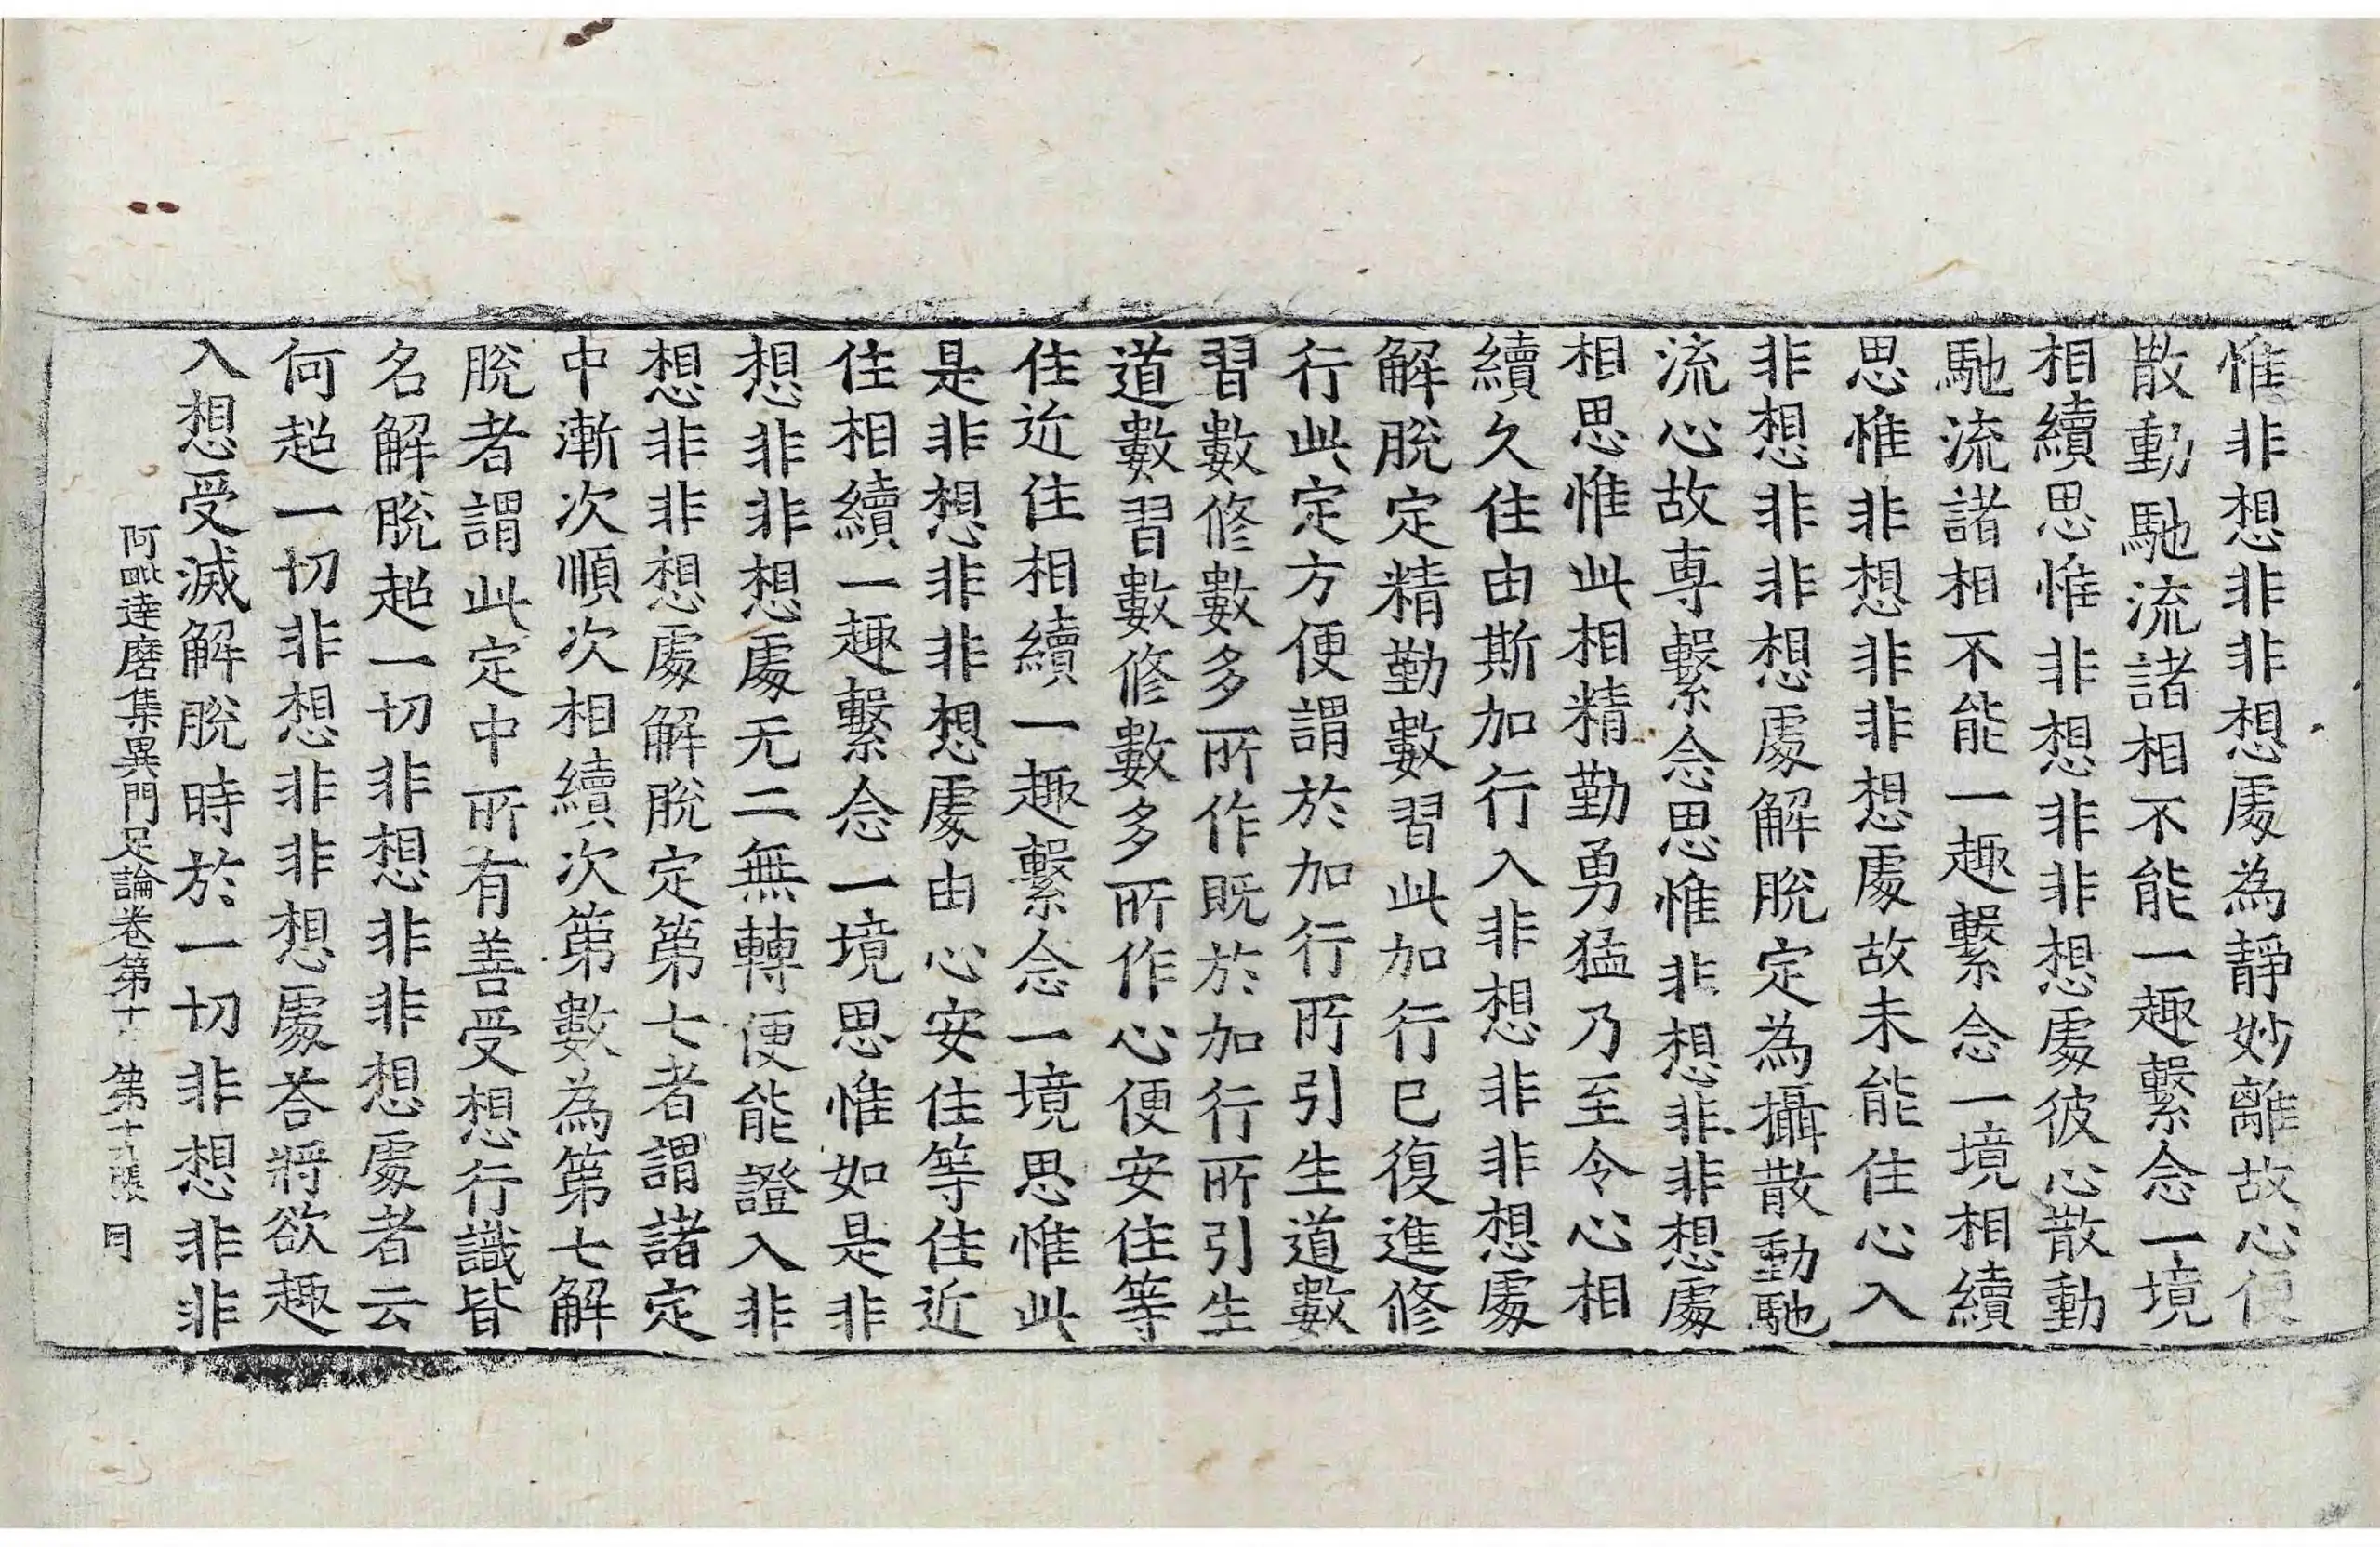 惟非想非非想處為靜妙離故心便
散動馳流諸相不能一趣繫念一境
相續思惟非想非非想處彼心散動
馳流諸相不能一趣繫念一境相續
思惟非想非非想處故未能住心入
非想非非想處解脫定為攝散動馳
流心故專繫念思惟非想非非想處
相思惟此相精勤勇猛乃至令心相
續久住由斯加行入非想非非想處
解脫定精勤數習此加行已復進修
行此定方便謂於加行所引生道數
習數修數多所作既於加行所引生
道數習數修數多所作心便安住等
住近住相續一趣繫念一境思惟此
是非想非非想處由心安住等住近
住相續一趣繫念一境思惟如是非
想非非想處无二無轉便能證入非
想非非想處解脫定第七者謂諸定
中漸次順次相續次第數為第七解
脫者謂此定中所有善受想行識皆
名解脫超一切非想非非想處者云
何超一切非想非非想處荅將欲趣
入想受滅解脫時於一切非想非非
阿毗達磨集異門足論卷第十 第十九張 同